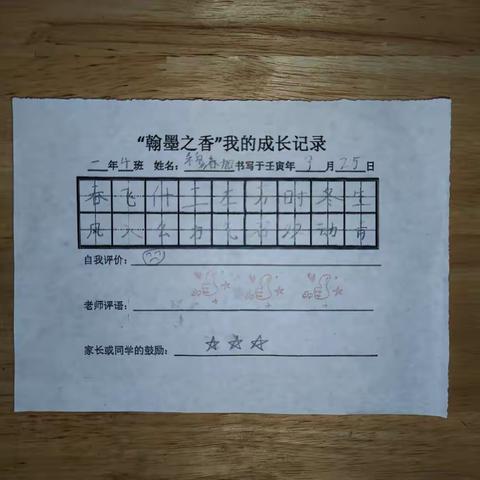 “翰墨之香”我的成长记录
一年4班 姓名:书写于壬寅年3月25日
春飞什三 时冬生
风入么 双动市
自我评价:
老师评语:
家长或同学的鼓励: